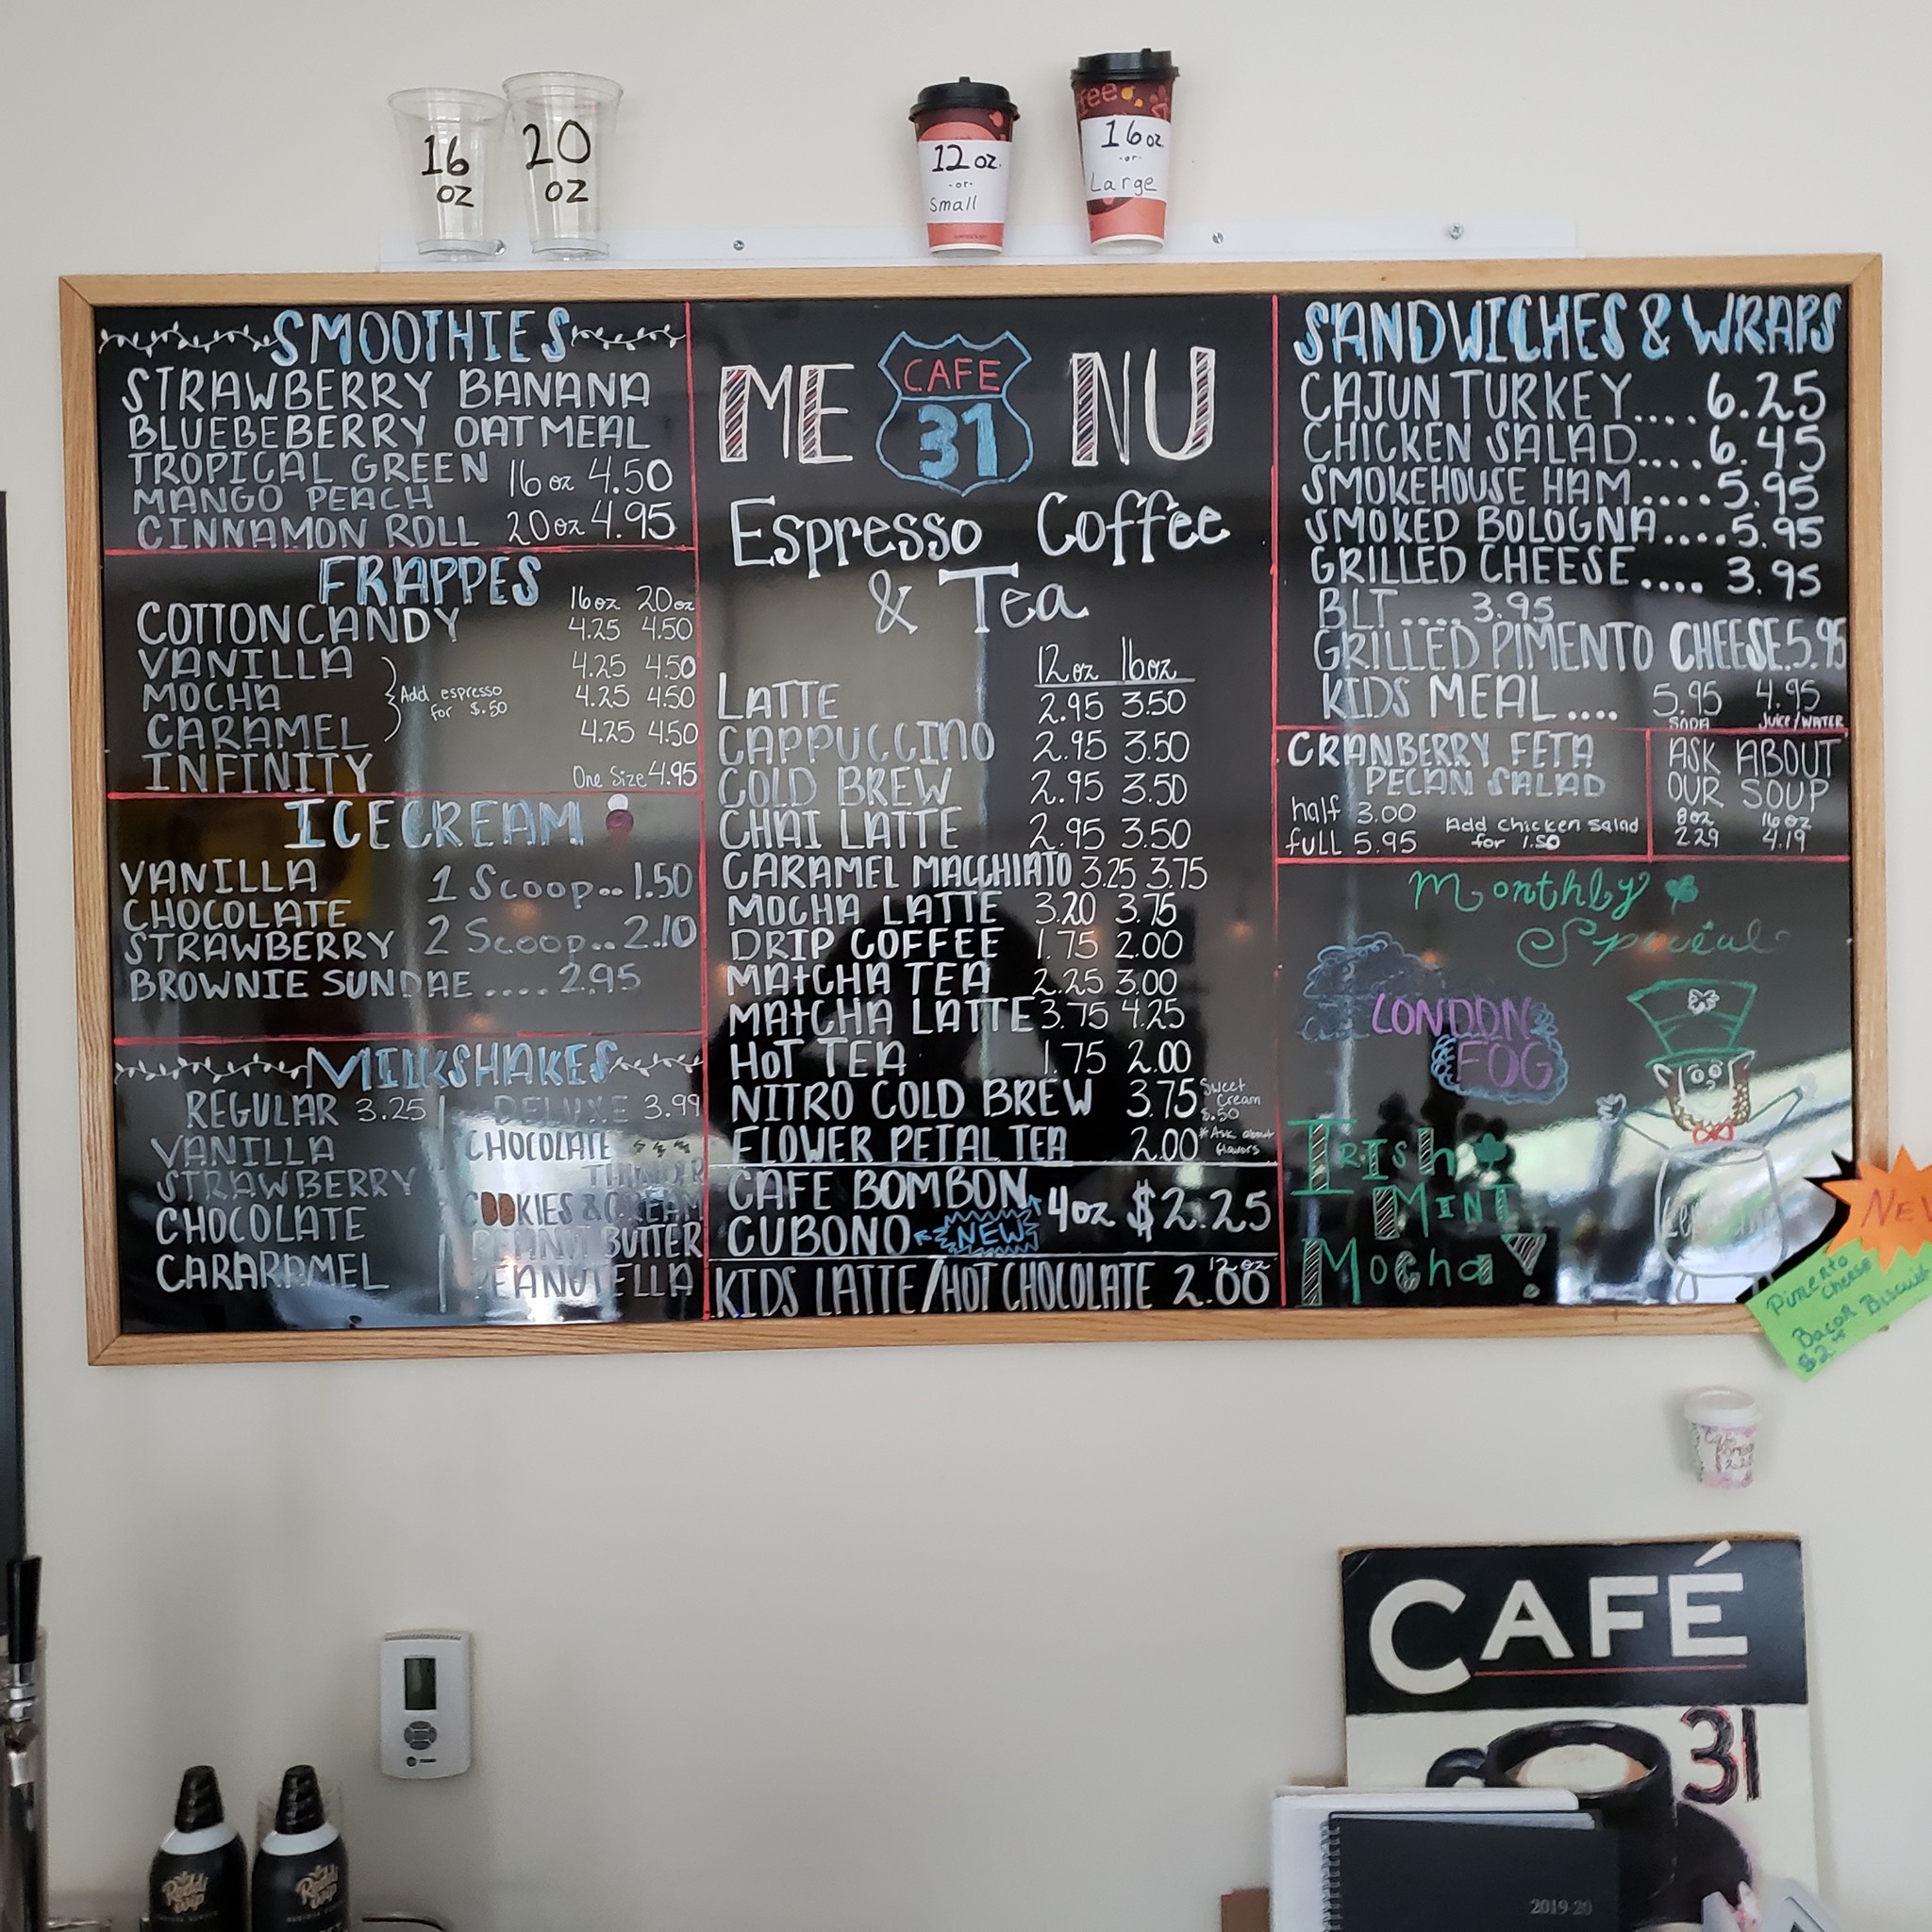 16
oz
20
oz
12 oz.
-or-
Small
16 oz
-or-
Large
SMOOTHIES
STRAWBERRY BANANA
BLUEBEBERRY OATMEAL
TROPICAL GREEN 16 oz 4.50
MANGO PEACH
CINNAMON ROLL 20 oz 4.95
FRAPPES
16 oz 20 oz
COTTON CANDY 4.25 4.50
VANILLA 4.25 4.50
MOCHA 4.25 4.50
Add espresso
for $.50
CARAMEL 4.25 4.50
INFINITY One Size 4.95
ICE CREAM
VANILLA 1 Scoop.. 1.50
CHOCOLATE
STRAWBERRY 2 Scoop.. 2.10
BROWNIE SUNDAE .... 2.95
MILKSHAKES
REGULAR 3.25
VANILLA
STRAWBERRY
CHOCOLATE
CARARAMEL
DELUXE 3.99
CHOCOLATE
THUNDER
COOKIES & CREAM
PEANUT BUTTER
MENU
CAFE
31
Espresso Coffee
& Tea
12 oz 16 oz
LATTE 2.95 3.50
CAPPUCCINO 2.95 3.50
COLD BREW 2.95 3.50
CHAI LATTE 2.95 3.50
CARAMEL MACCHIATO 3.25 3.75
MOCHA LATTE 3.20 3.75
DRIP COFFEE 1.75 2.00
MATCHA TEA 2.25 3.00
MATCHA LATTE 3.75 4.25
HOT TEA 1.75 2.00
NITRO COLD BREW 3.75
Sweet
Cream
$.50
FLOWER PETAL TEA 2.00
*Ask about
flavors
CAFE BOMBON
CUBONO NEW 4oz $2.25
KIDS LATTE/HOT CHOCOLATE 12 oz 2.00
SANDWICHES & WRAPS
CAJUN TURKEY.... 6.25
CHICKEN SALAD.... 6.45
SMOKEHOUSE HAM.... 5.95
SMOKED BOLOGNA.... 5.95
GRILLED CHEESE .... 3.95
BLT .... 3.95
GRILLED PIMENTO CHEESE 5.95
KIDS MEAL .... 5.95 4.95
SODA JUICE/WATER
CRANBERRY FETA
PECAN SALAD
half 3.00
full 5.95
Add chicken salad
for 1.50
ASK ABOUT
OUR SOUP
8oz 16oz
2.29 4.19
Monthly
Special
LONDON
FOG
IRISH
MINT
MOCHA!
NEW
Pimento
Cheese
Bacon Biscuit
CAFÉ
31
2019-20
Reddi
wip
Reddi
wip